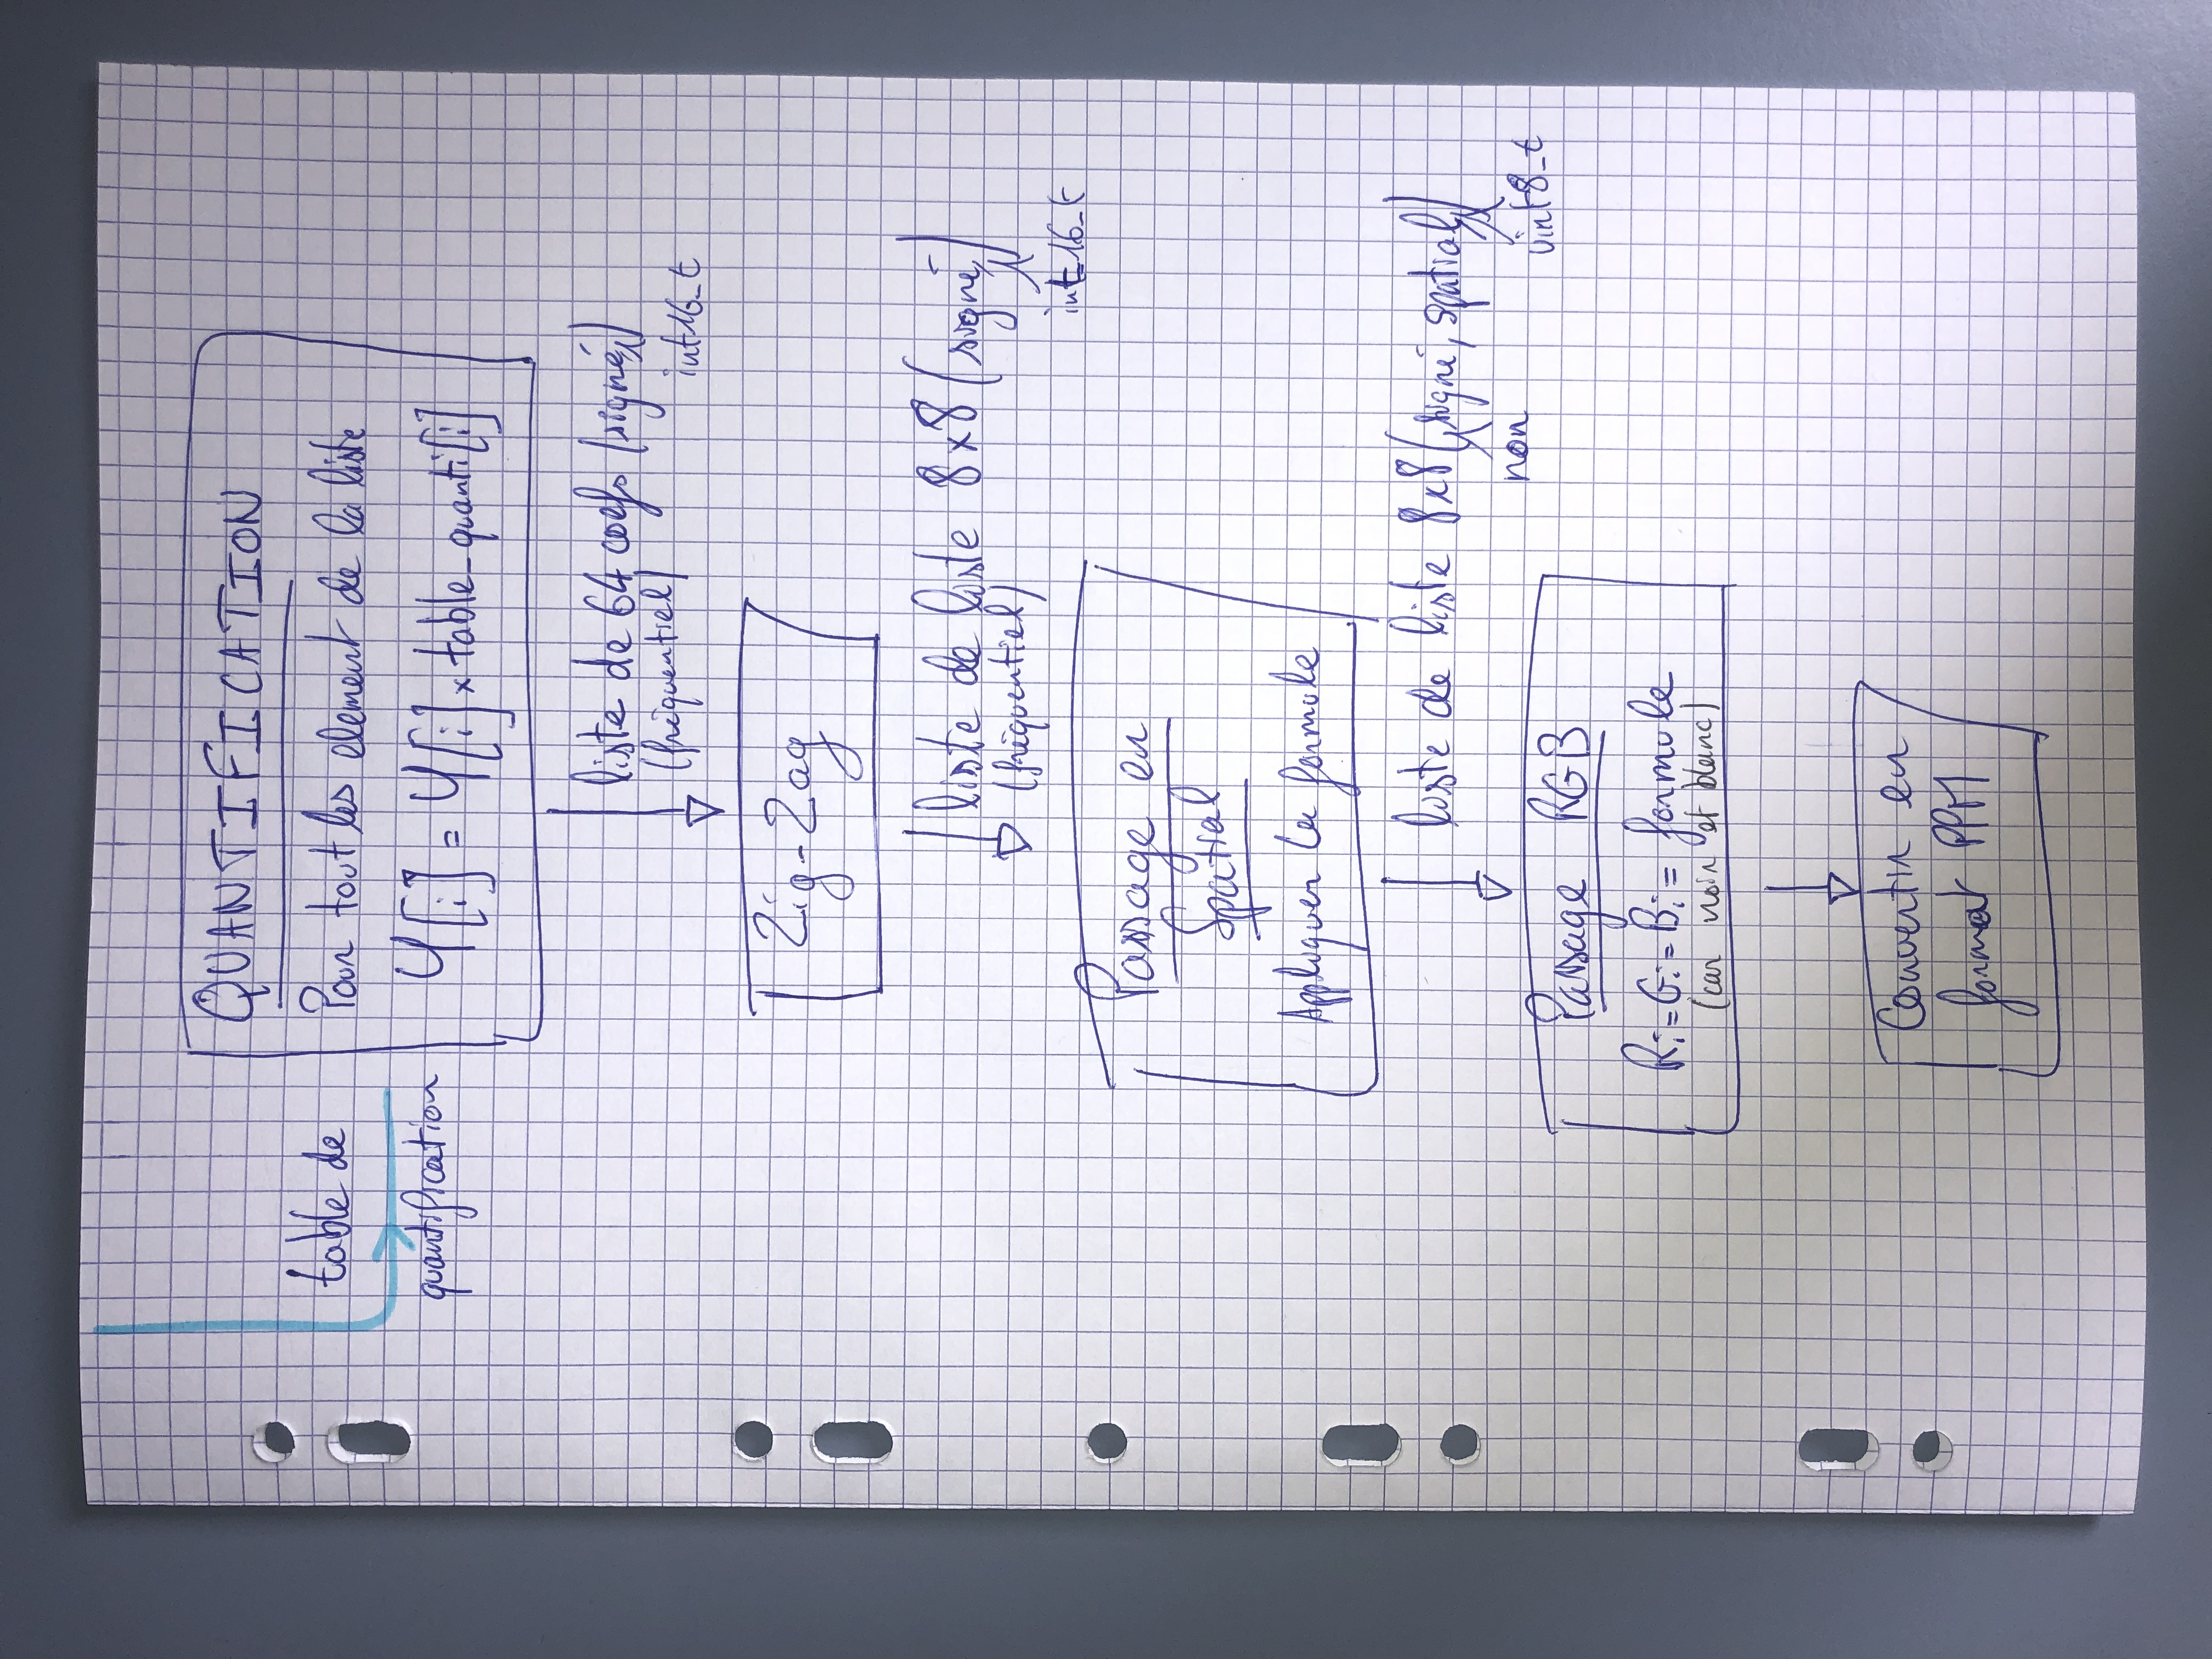 QUANTIFICATION
Pour tout les element de la liste
Y[i] = Y[i] x table_quanti[i]
table de
quantification
liste de 64 coefs (signé,)
(fréquentiel)
int16_t
Zig-Zag
liste de liste 8x8 (signé,)
(fréquentiel)
int_16_t
Passage en
Spatial
Appliquer la formule
liste de liste 8x8 (signé, spatial,)
non
uint8_t
Passage RGB
Ri=Gi=Bi= formule
(car noir et blanc)
Convertir en
format PPM